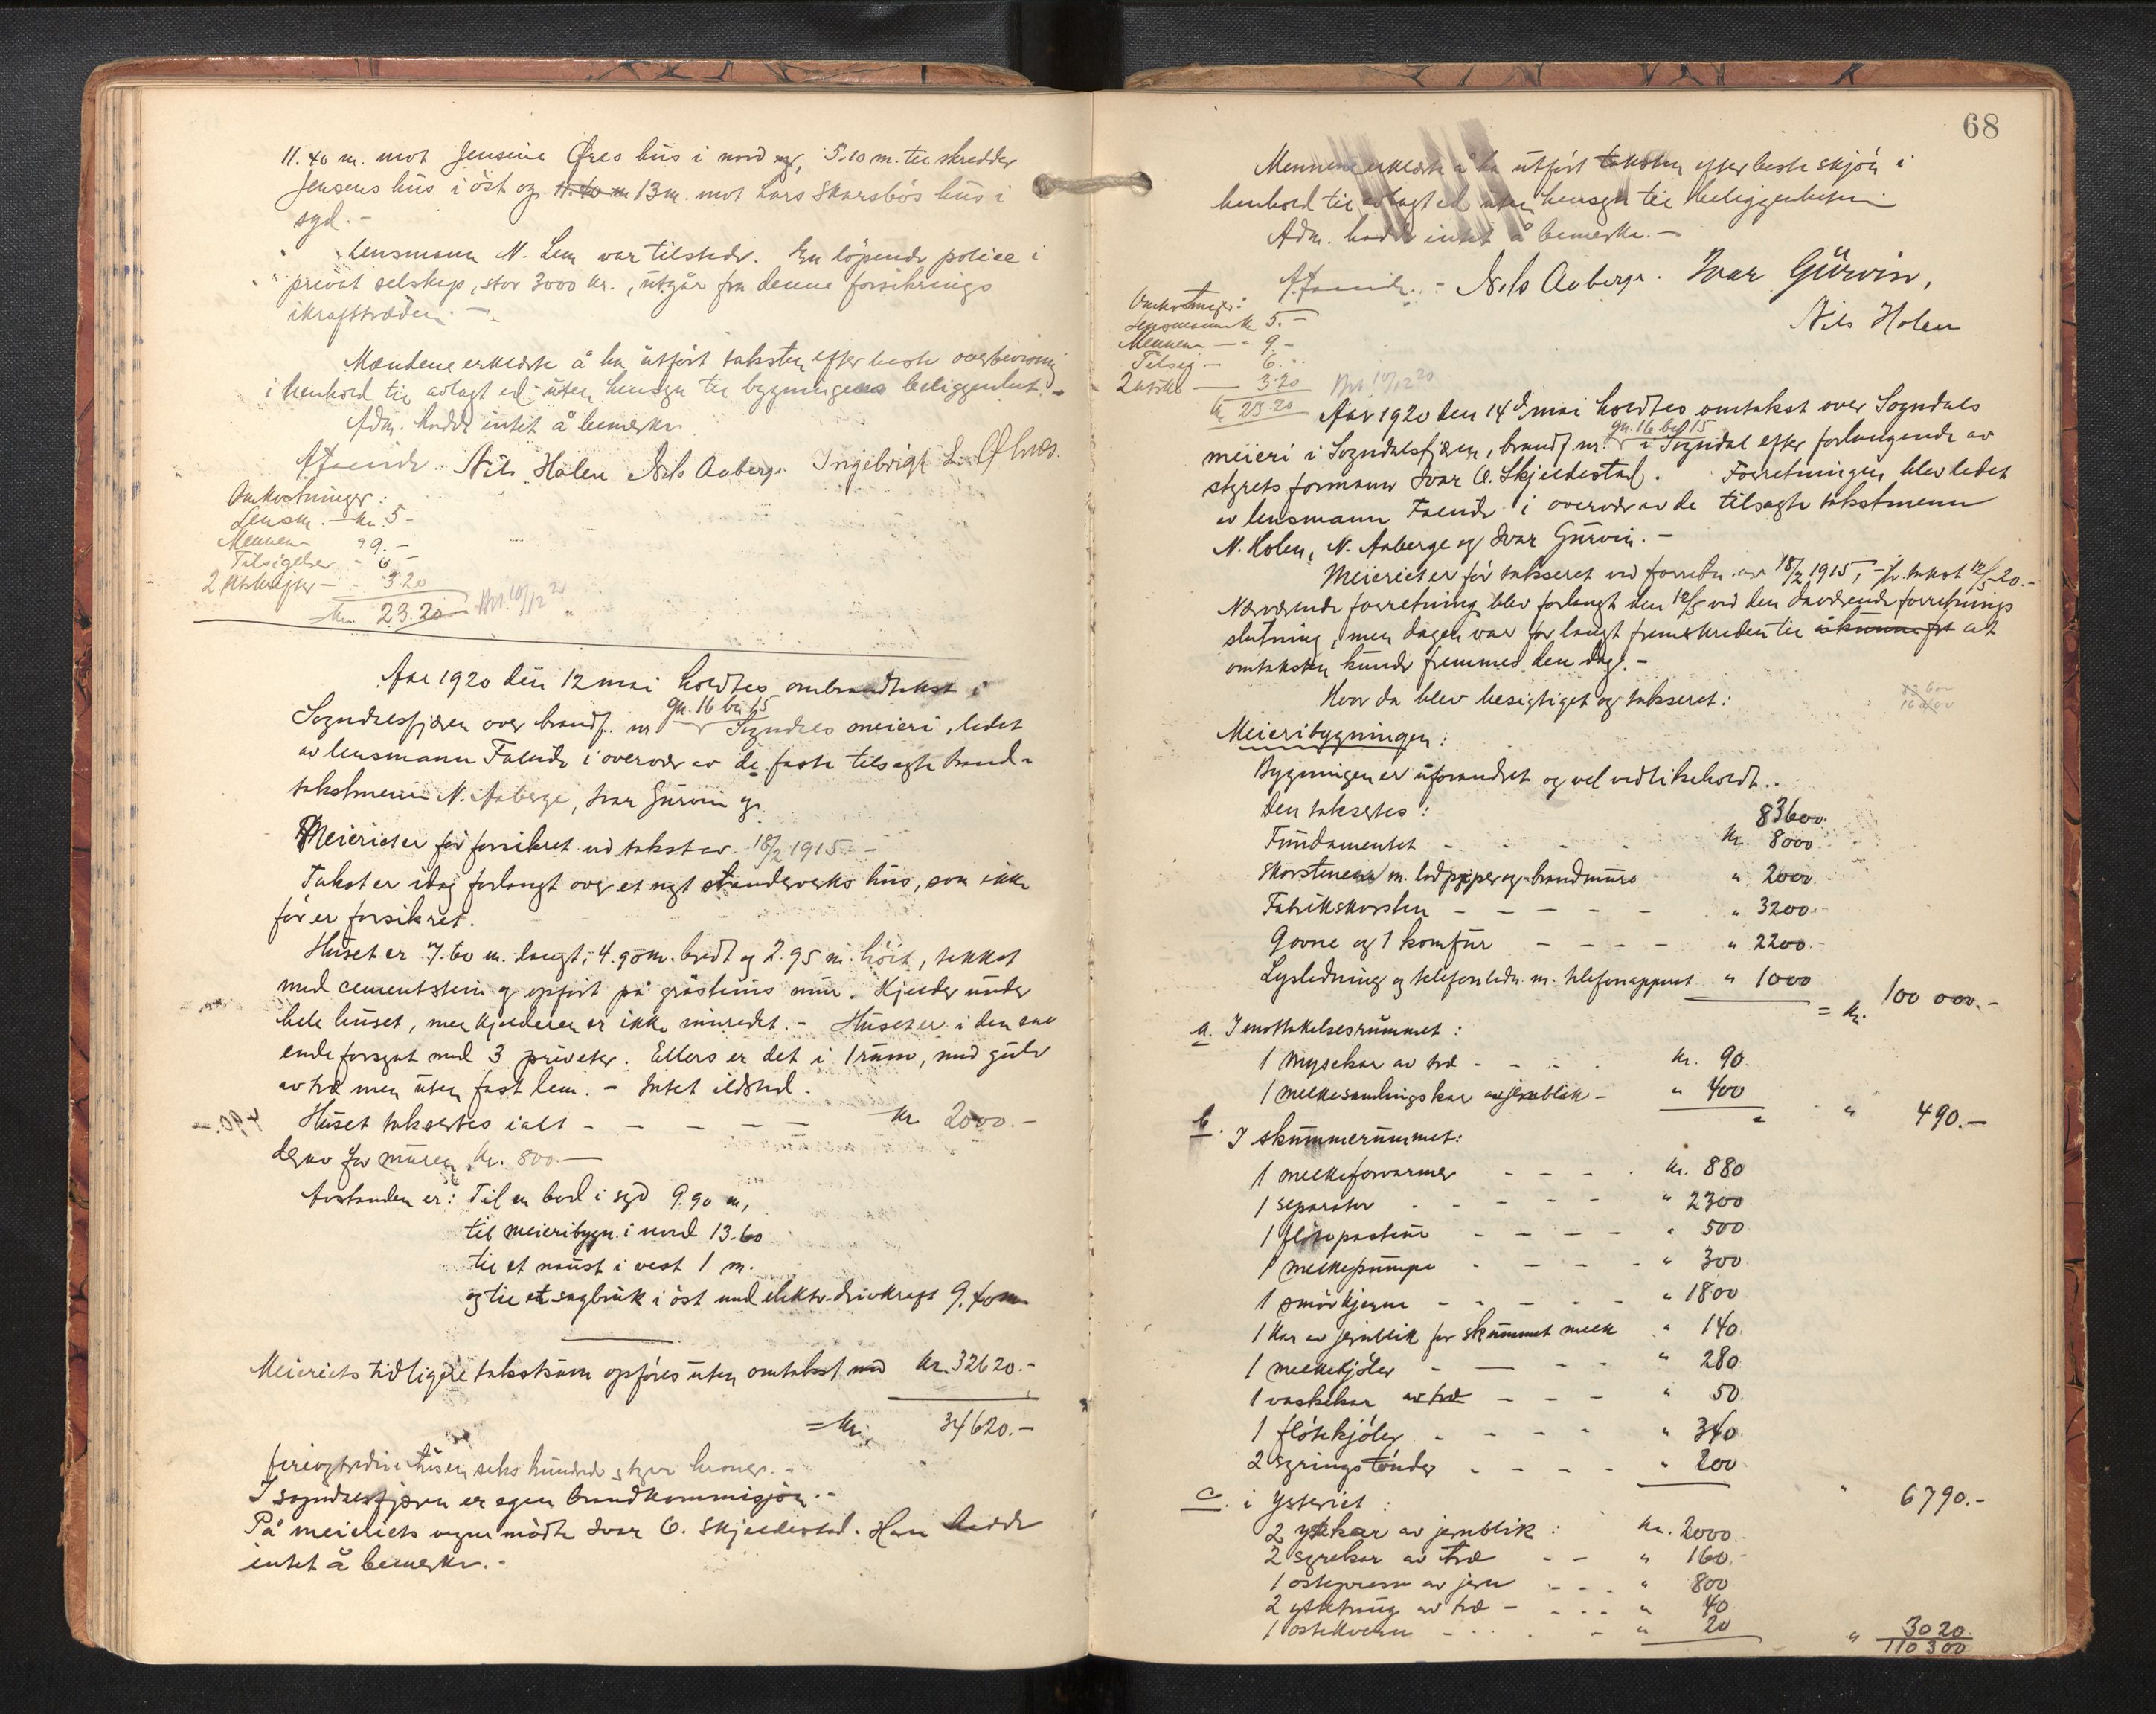 11.40 m. mot Jensine Øres hus i nord og, 5.10 m. til skredder
Jensens hus i öst og 11.40 m 13 m. mot Lars Skarsbös hus i
syd.-
Lensmann N. Lem var tilstede. En löpende police i
privat selskap, stor 3000 kr., utgår fra denne forsikrings
ikrafttræden. -
Mændene erklærte å ha utfört taksten efter beste overbevisning
i henhold til avlagt ed uten hensyn til bygningens beliggenhet. -
Adm. hadde intet å bemerke.
A Falende. Nils Holen Nils Aaberge. Ingebrigt L. Ølnes.
Omkostninger:
Lensm. - kr. 5 -
Mennene " 9. -
Tilsigelser - 6 -
2 utskrifter - - 3.20
Kr. 23.20 Bet. 10/12 20
Aar 1920 den 12 mai holdtes ombrandtakst i
gn. 16 bn 15
Sogndalsfjæren over brandf. nr Sogndals meieri, ledet
av lensmann Falende i overvær av de faste tilsagte brand-
takstmenn N. Aaberge, Ivar Gurvin og
Meieriet er för forsikret ved takst av 18/2 1915. -
Takst er idag forlangt over et nyt standerverks hus, som ikke
för er forsikret.
Huset er 7.60 m. langt, 4.90 m. bredt og 2.95 m. höit, tekket
med cementstein og opfört på gråsteins mur. Kjelder under
hele huset, men kjelderen er ikke inredet. - Huset er i den ene
ende forsynt med 3 priveter. Ellers er det i 1 rum, med gulv
av træ men uten fast lem. - Intet ildsted.
Huset taksertes ialt - - - - - kr 2000.-
derav for muren kr. 800.-
Avstanden er: Til en bod i syd 9.90 m,
til meieribygn. i nord 13.60
til et naust i vest 1 m.
og til et sagbruk i öst med elektr. drivkraft 9.40 m
Meieriets tidligere takstsum opföres uten omtakst med kr. 32620.-
= kr. 34620.-
fireogtredive tusen seks hundrede og tyve kroner. -
I Sogndalsfjæren er egen brandkommisjon. -
På meieriets vegne mödte Ivar O. Skjeldestad. Han hadde
intet å bemerke. -
68
Mennene erklærte å ha utfört taksten efter beste skjön i
henhold til avlagt ed uten hensyn til beliggenheten
Adm. hadde intet å bemerke. -
A Falende. - Nils Aaberge. Ivar Gürvin,
Nils Holen
Omkostninger:
Lensmann kr 5. -
Mennene - " 9. -
Tilsig - 6. -
2 utskr. - 3.20 Bet. 10/12 20
kr 23.20
Aar 1920 den 14d mai holdtes omtakst over Sogndals
gn. 16 bn 15
meieri i Sogndalsfjæren, brandf. nr. i Sogndal efter forlangende av
styrets formann Ivar O. Skjeldestad. Forretningen blev ledet
av lensmann Falende i overvær av de tilsagte takstmenn
N. Holen, N. Aaberge og Ivar Gurvin. -
Meieriet er för taksert ved forretn. av 18/2 1915, - jfr. takst 12/5 20. -
Nærværende forretning blev forlangt den 12/5 ved den daværende forretnings
slutning, men dagen var for langt fremskreden til å kunne få at
omtaksten kunde fremmes den dag. -
Hvor da blev besigtiget og taksert:
Meieribygningen:
Bygningen er uforandret og vel vedlikeholdt. -
Den taksertes: 83600.
Fundamentet - - - - kr. 8000.
Skorstenene m. lodpiper og brandmure " 2000.
Fabrikskorsten - - - - - " 3200.-
Govne og 1 komfur - - - - " 2200.-
Lysledning og telefonledn. m. telefonapparat " 1000
= kr. 100 000.-
a. I mottakelsesrummet:
1 mysekar av træ - - - - kr. 90.
1 melkesamlingskar av jernblik - " 400
" 490.-
b. I skummerummet:
1 melkeforvarmer - - - - kr. 880
1 separator - - - - - " 2300
1 flötepastuur - - - - " 500
1 melkepumpe - - - - " 300
1 smörkjerne - - - - - " 1800
1 kar av jernblik for skummet melk " 140.
1 melkekjöler - - - - " 280
1 vaskekar av træ - - - " 50.
1 flötekjöler - - - - " 340.
2 syringstönder - - - - " 200
" 6790.-
c. i Ysteriet:
2 ystekar av jernblik: kr. 2000.
2 syrekar av træ - - " 160.-
1 ostepresse av jern - - - " 800
2 ystetraug av træ - - - - " 40
1 ostekvern - - - - - " 20
" 3020.
110 300